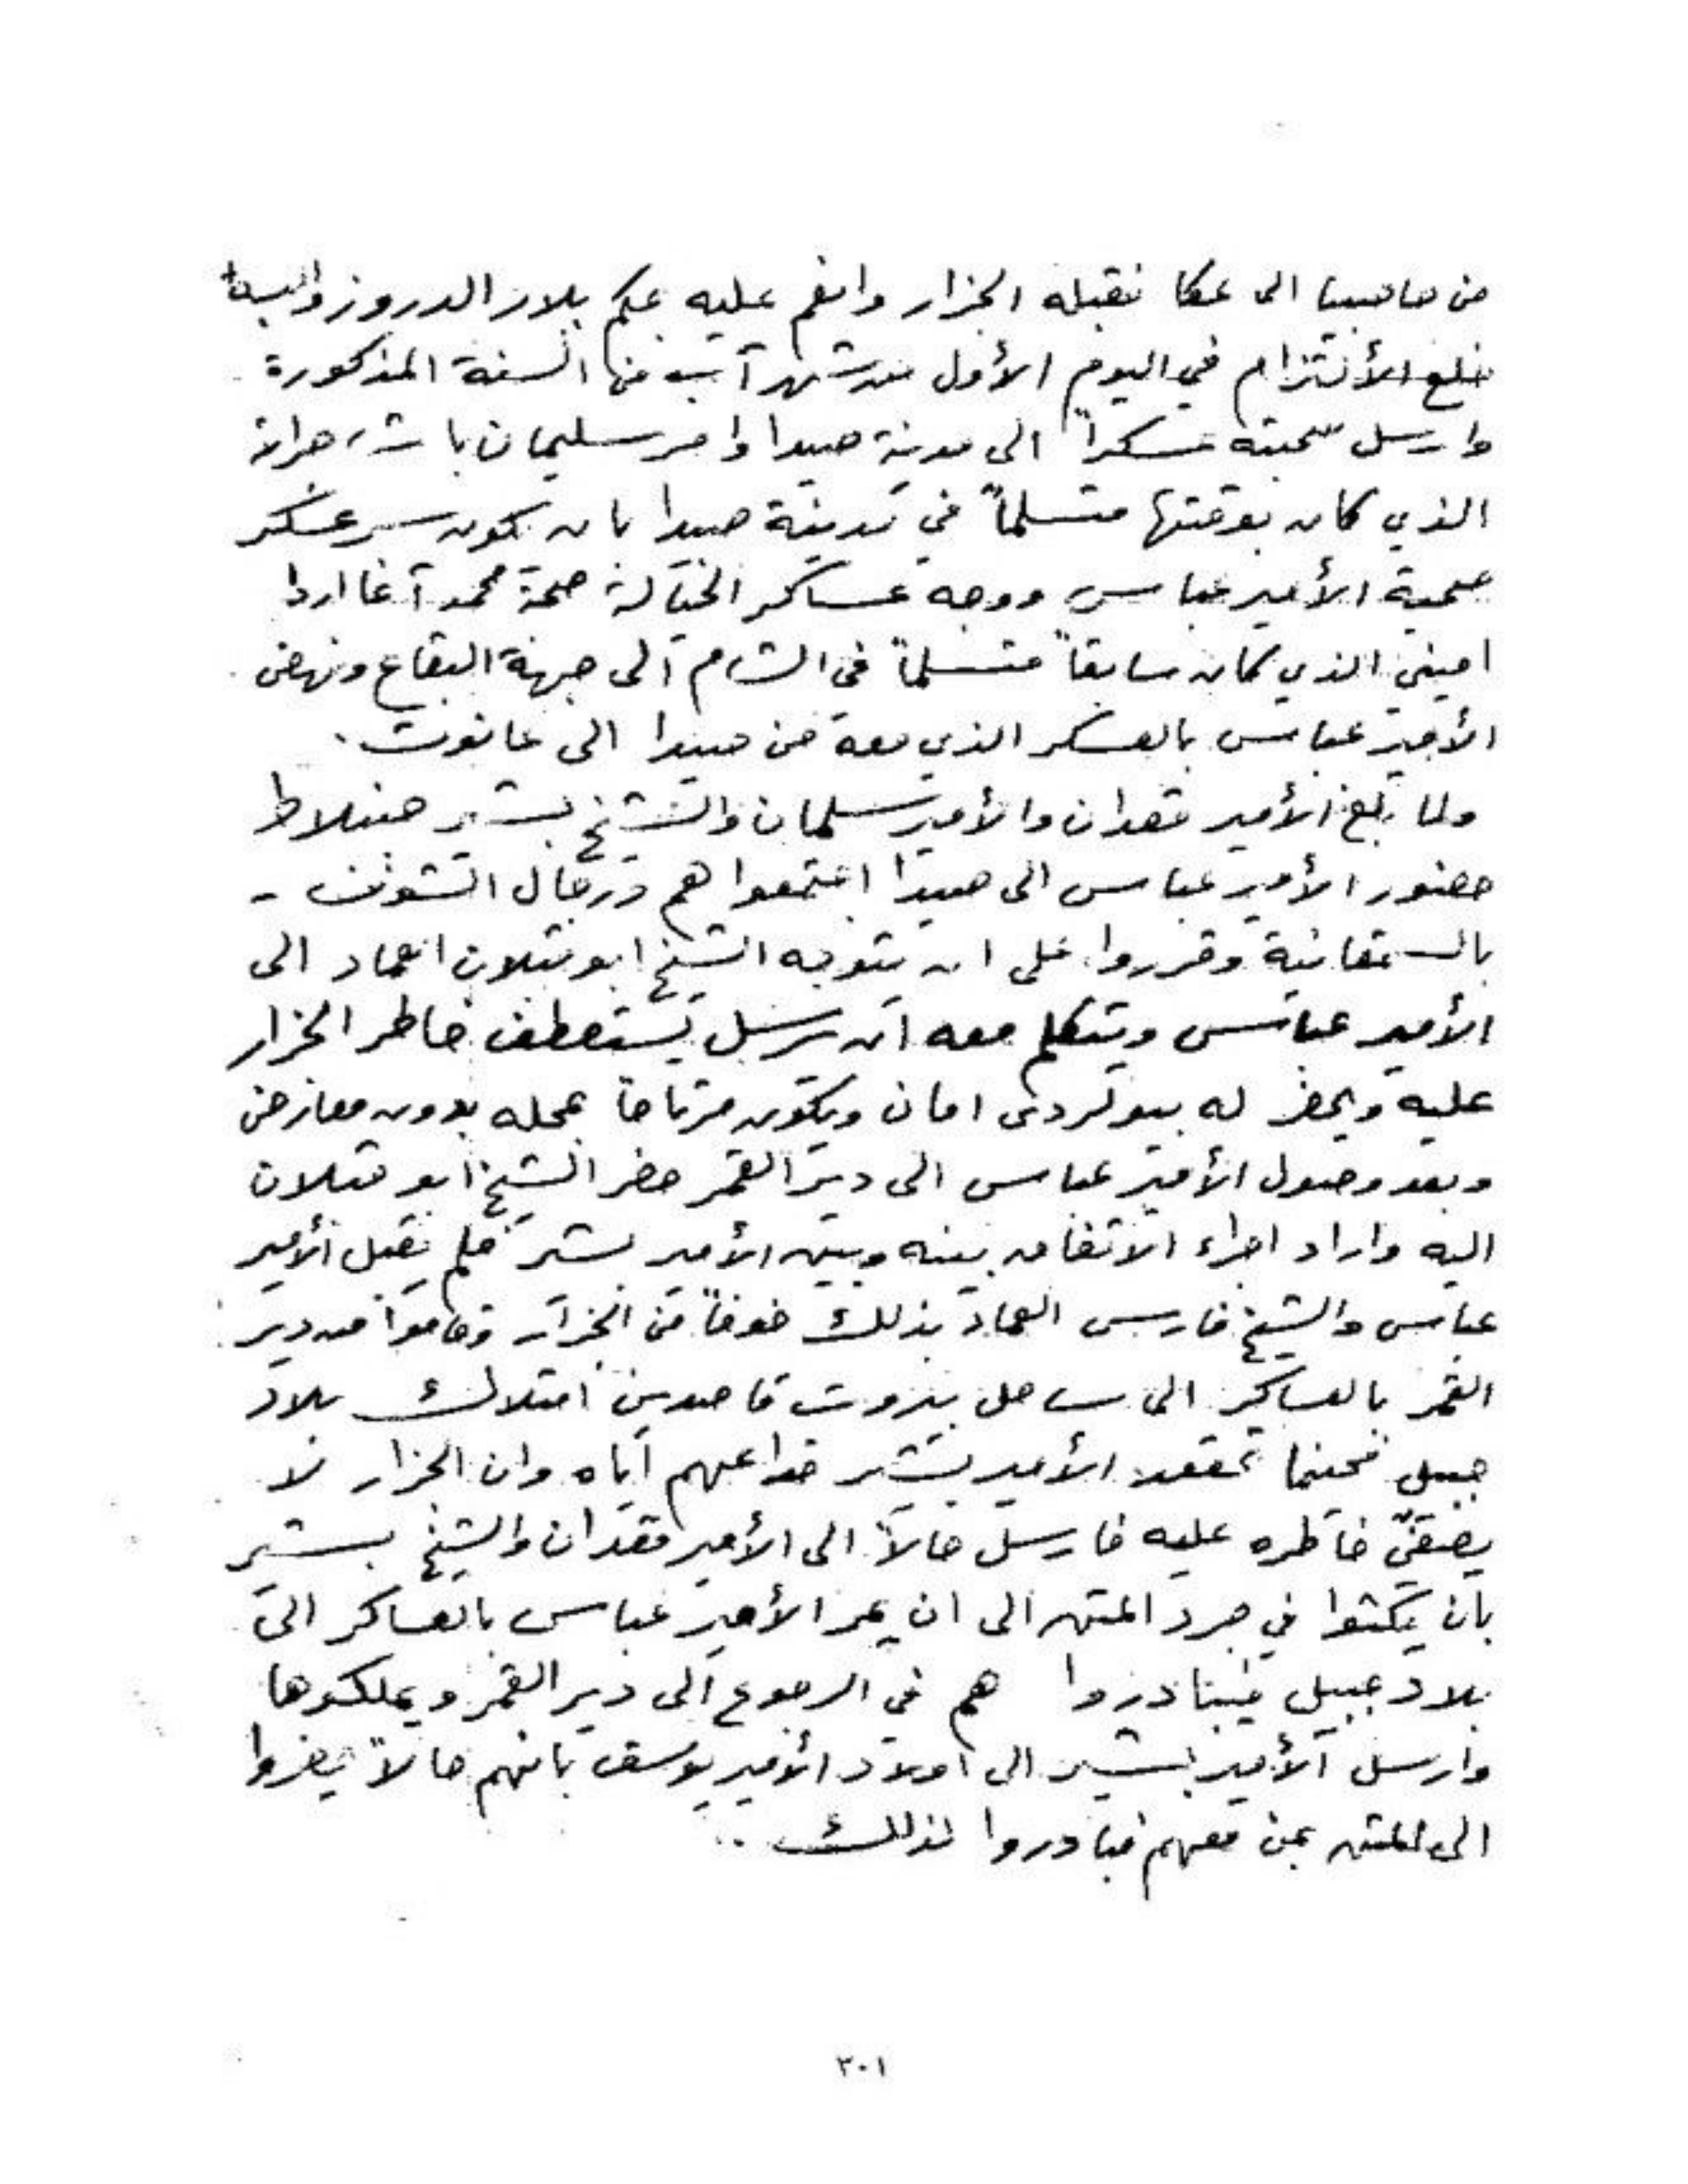 من حاصبيا الى عكا فقبله الجزار وانعم عليه بحكم بلاد الدروز والبسه
خلع الألتزام في اليوم الأول من شهر آب من السنة المذكورة
وارسل صحبته عسكراً الى مدينة صيدا وامر سليمان باشا
الذي كان بوقتها متسلماً في مدينة صيدا بان يكون سر عسكر
صحبة الأمير عباس ووجه عساكر الخيالة صحبة محمد آغا
اميني الذي كان سابقاً متسلماً في الشام الى جهة البقاع ونهض
الأمير عباس بالعسكر الذي معه من صيدا الى عانوت .
ولما بلغ الأمير قعدان والأمير سلمان والشيخ بشير جنبلاط
حضور الأمير عباس الى صيدا اجتمعوا هم ورجال الشوف -
بالسمقانية وقرروا على ان يتوجه الشيخ ابو قبلان العماد الى
الأمير عباس ويتكلم معه ان يرسل يستعطف خاطر الجزار
عليه ويحضر له بيولردى امان ويكون مرتاحاً بمحله بدون معارض
وبعد وصول الأمير عباس الى دير القمر حضر الشيخ ابو قبلان
اليه واراد اجراء الاتفاق بينه وبين الأمير بشير فلم يقبل الأمير
عباس والشيخ فارس العماد بذلك خوفاً من الجزار وقاموا من دير
القمر بالعساكر الى ساحل بيروت قاصدين امتلاك بلاد
جبيل فحينما تحقق الأمير بشير خداعهم اياه وان الجزار لا
خاطره عليه فارسل حالاً الى الأمير قعدان والشيخ بشير
بان يمكثوا في جرد المتن الى ان يمر الأمير عباس بالعساكر الى
بلاد جبيل فيبادروا هم في الرجوع الى دير القمر ويملكوها
وارسل الأمير بشير الى اولاد الأمير يوسف بانهم حالاً يحضروا
الى المتن بمن معهم فبادروا لذلك ..
٣٠١